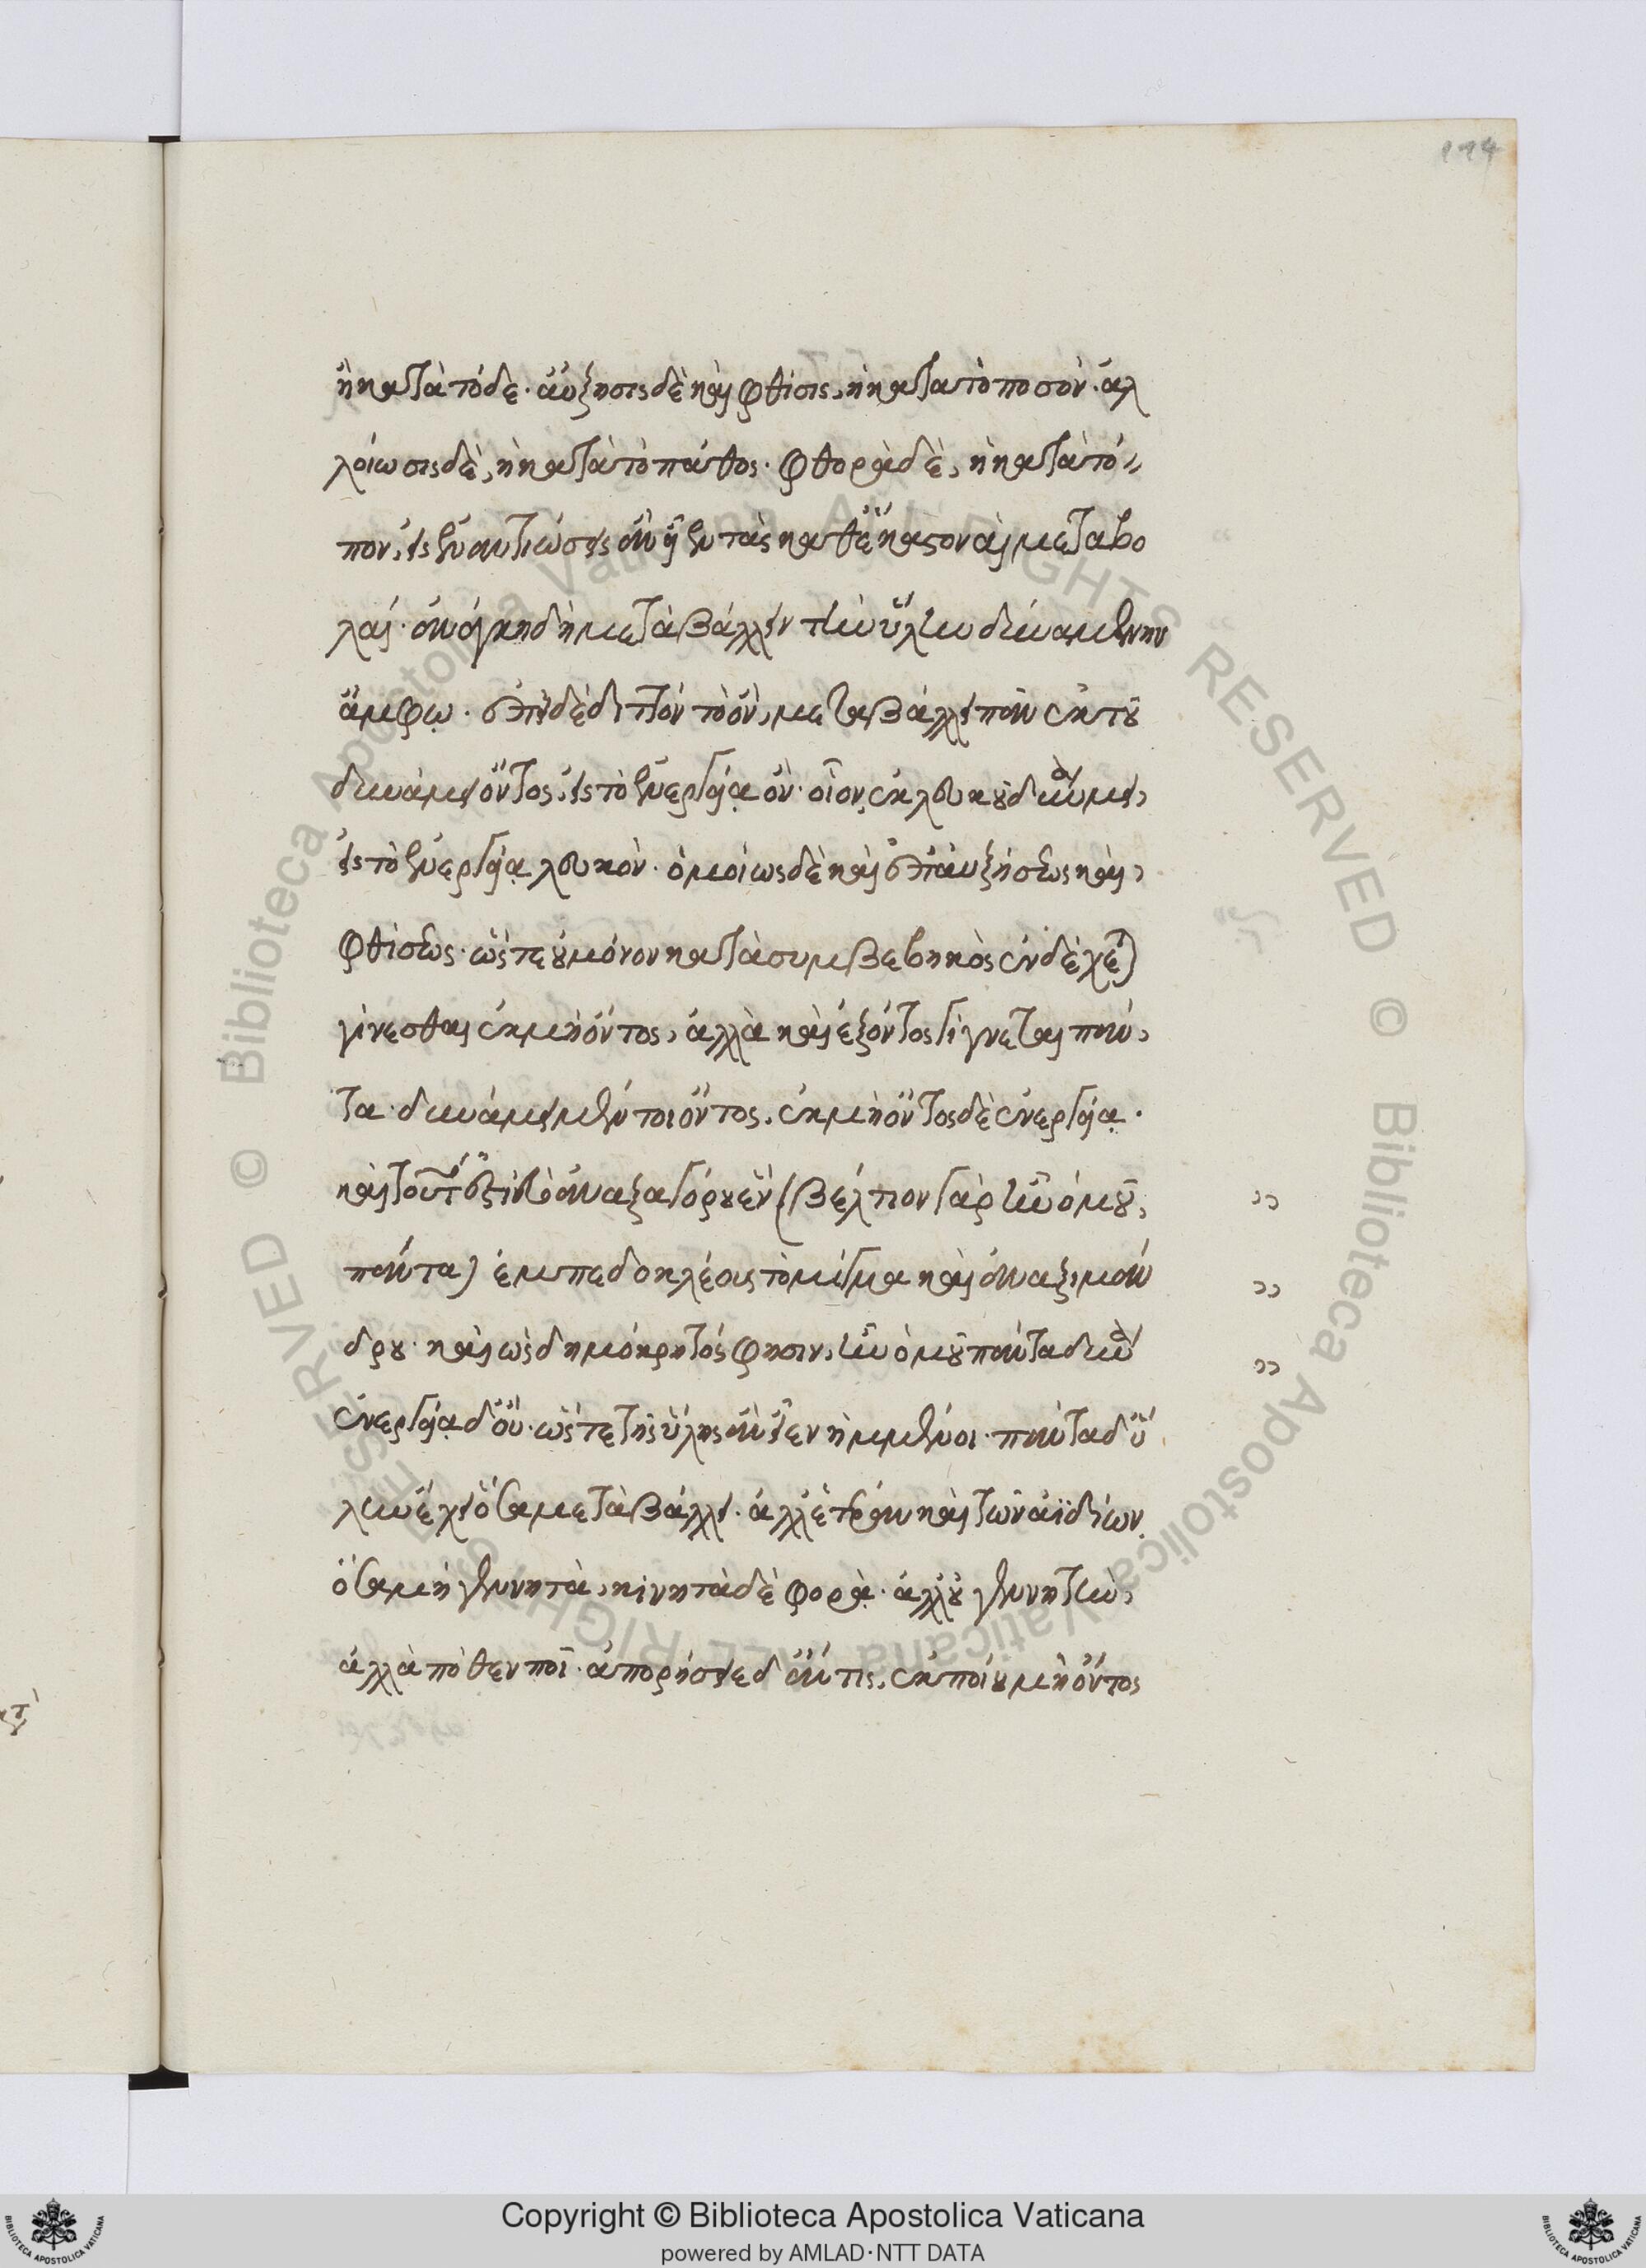 114
ἡ κατὰ τόδε· αὔξησις δὲ καὶ φθίσις, ἡ κατὰ τὸ ποσόν· ἀλ
λοίωσις δὲ, ἡ κατὰ τὸ πάθος· φθορὰ δὲ, ἡ κατὰ τό
πον, εἰς ἐναντιώσεις ἂν εἶεν τὰς καθ' ἕκαστον αἱ μεταβο
λαί· ἀνάγκη δὴ μεταβάλλειν τὴν ὕλην δυναμένην
ἄμφω· ἐπεὶ δὲ διττὸν τὸ ὂν, μεταβάλλει πᾶν ἐκ τοῦ
δυνάμει ὄντος, εἰς τὸ ἐνεργείᾳ ὄν· οἷον ἐκ λευκοῦ δυνάμει,
εἰς τὸ ἐνεργείᾳ λευκόν· ὁμοίως δὲ καὶ ἐπ' αὐξήσεως καὶ
φθίσεως· ὥστε οὐ μόνον κατὰ συμβεβηκὸς ἐνδέχεται
γίνεσθαι ἐκ μὴ ὄντος, ἀλλὰ καὶ ἐξ ὄντος γίγνεται πάν
τα· δυνάμει μέντοι ὄντος, ἐκ μὴ ὄντος δὲ ἐνεργείᾳ·
καὶ τοῦτ' ἐστὶ τὸ ἀναξαγόρου ἓν (βέλτιον γὰρ ἦν ὁμοῦ
πάντα) ἐμπεδοκλέους τὸ μίγμα καὶ ἀναξιμάν
δρου· καὶ ὡς δημόκριτός φησιν, ἦν ὁμοῦ πάντα δυνάμει
ἐνεργείᾳ δ' οὔ· ὥστε τῆς ὕλης ἂν εἶεν ἡμμένοι· πάντα δ' ὕ
λην ἔχει ὅσα μεταβάλλει· ἀλλ' ἑτέραν καὶ τῶν ἀϊδίων
ὅσα μὴ γεννητὰ, κινητὰ δὲ φορᾷ· ἀλλ' οὐ γεννητὴν,
ἀλλὰ πόθεν ποῖ· ἀπορήσειε δ' ἄν τις, ἐκ ποίου μὴ ὄντος
Copyright © Biblioteca Apostolica Vaticana
powered by AMLAD·NTT DATA